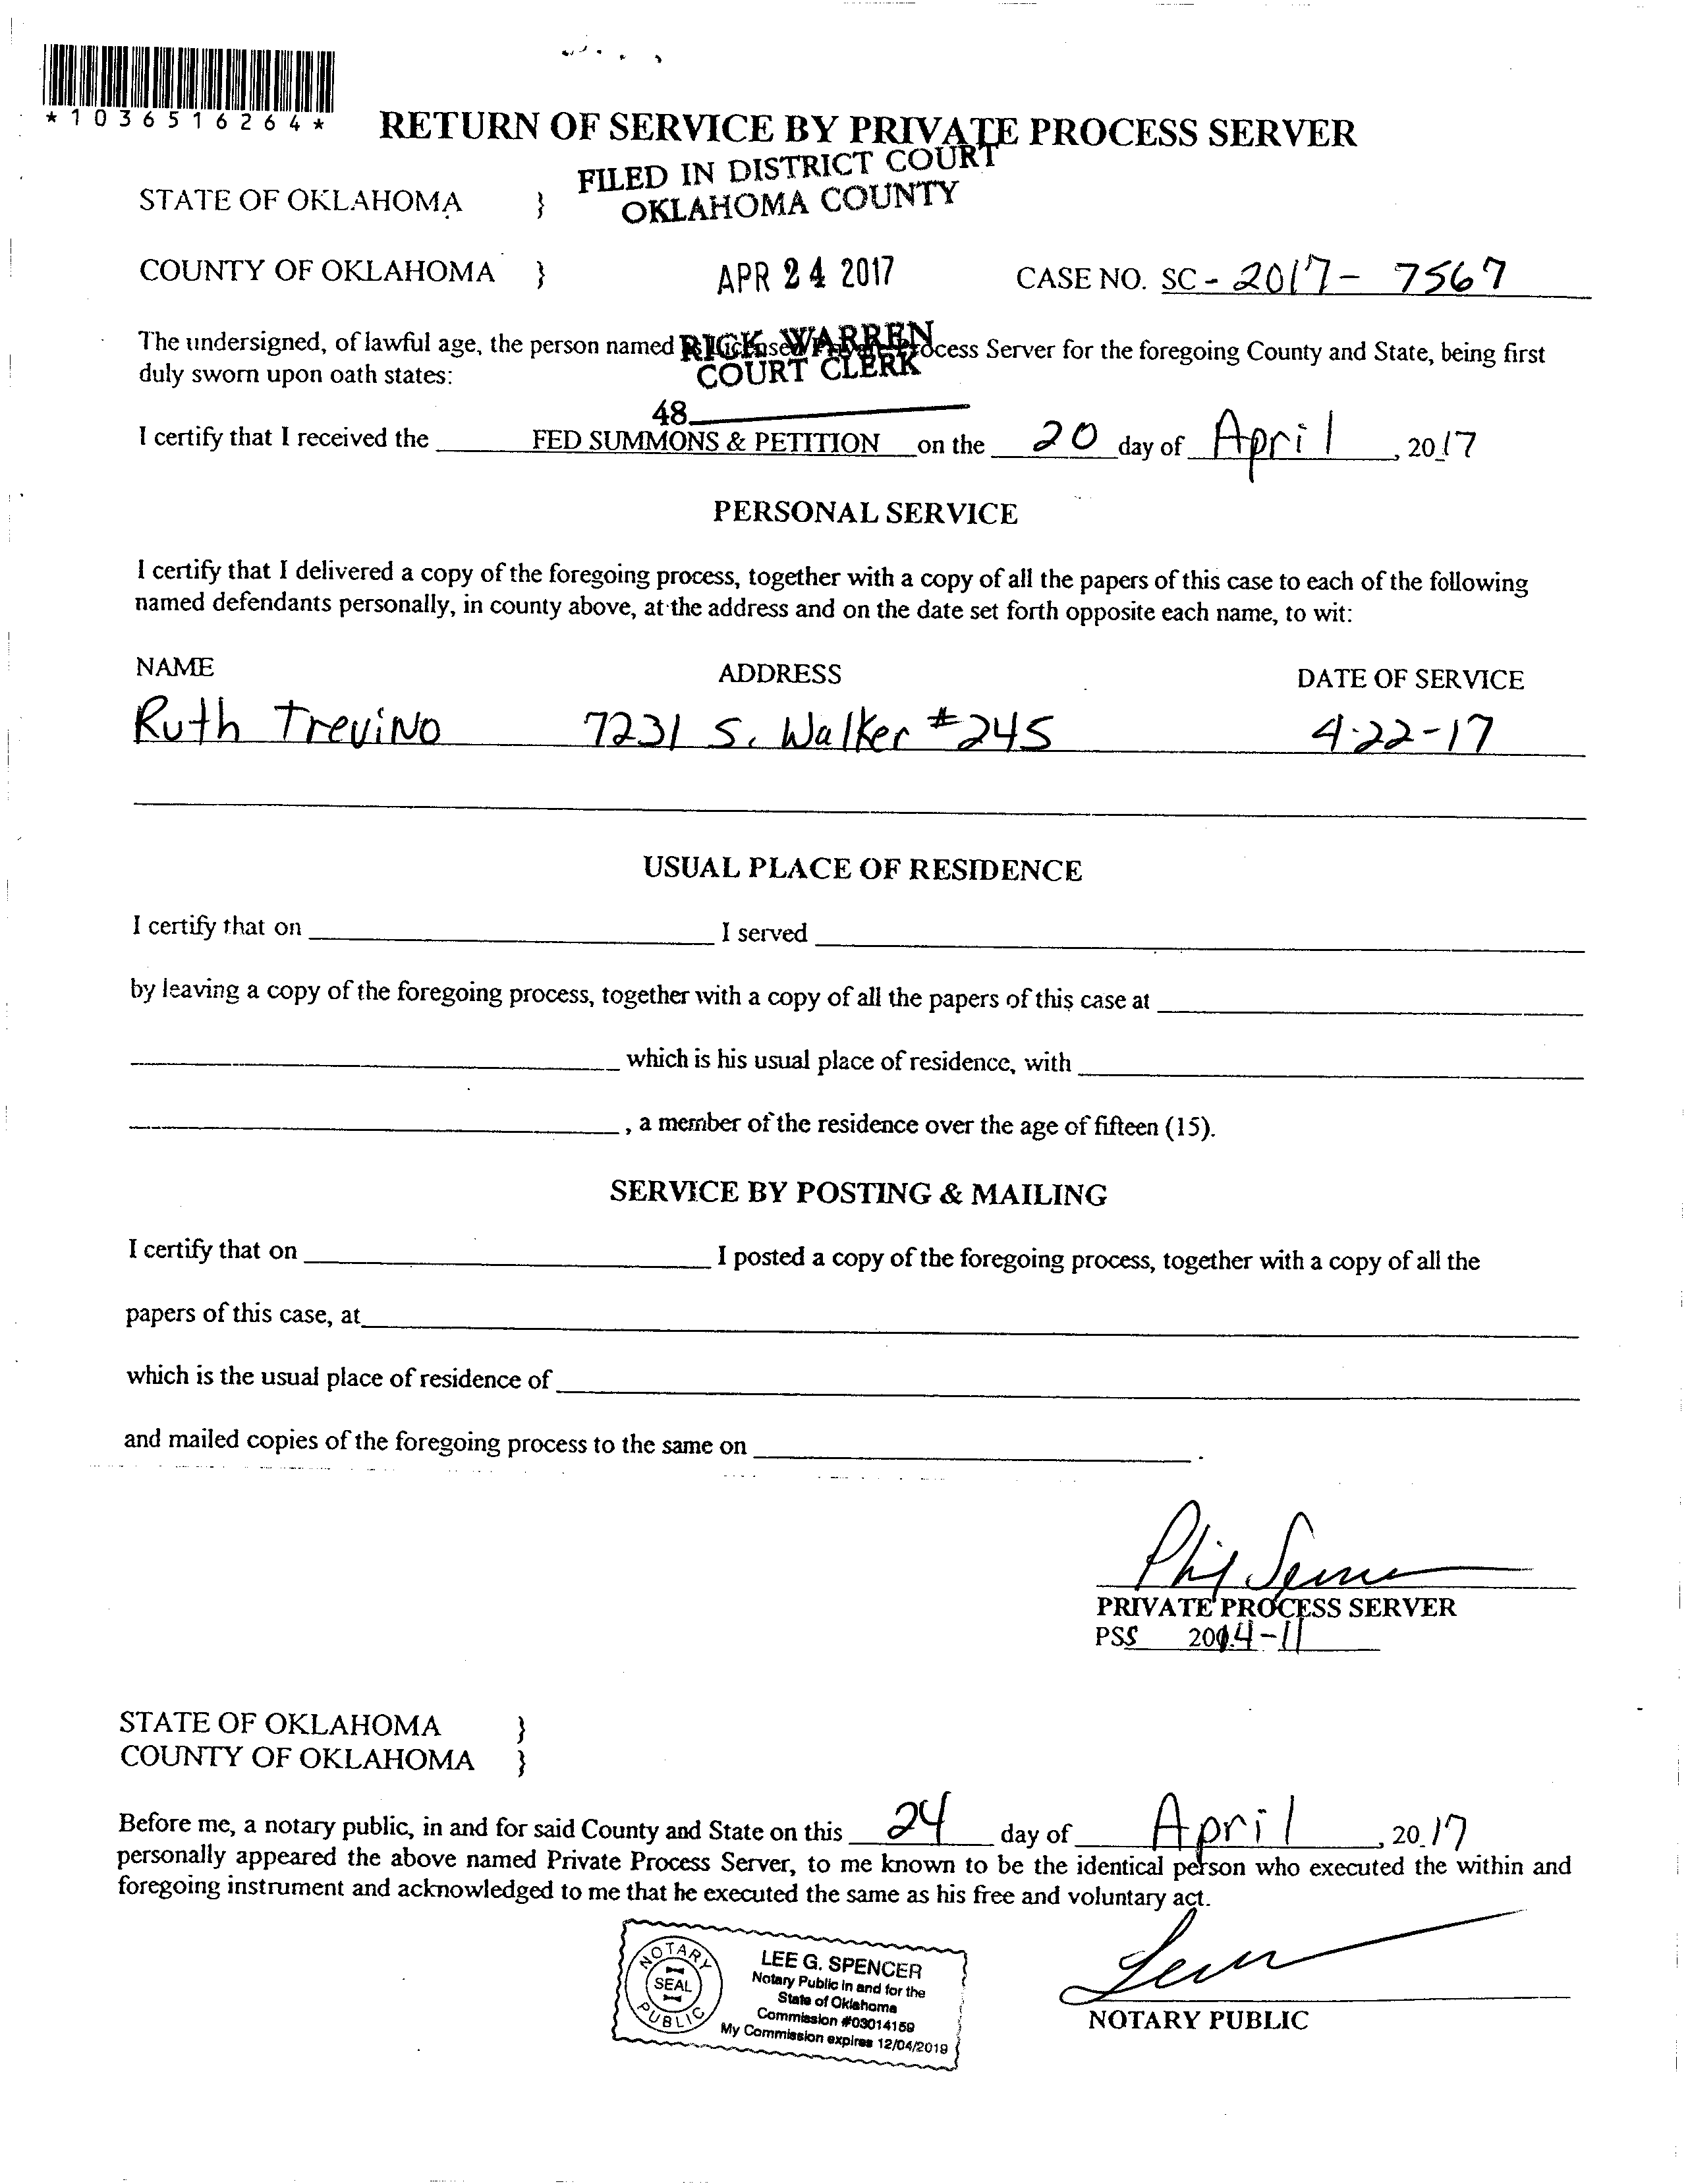 *1036516264*
RETURN OF SERVICE BY PRIVATE PROCESS SERVER
FILED IN DISTRICT COURT
OKLAHOMA COUNTY
STATE OF OKLAHOMA }
COUNTY OF OKLAHOMA } APR 24 2017 CASE NO. SC - 2017 - 7567
The undersigned, of lawful age, the person named Process Server for the foregoing County and State, being first
RICK WARREN
duly sworn upon oath states:
COURT CLERK
48
I certify that I received the FED SUMMONS & PETITION on the 20 day of April, 2017
PERSONAL SERVICE
I certify that I delivered a copy of the foregoing process, together with a copy of all the papers of this case to each of the following
named defendants personally, in county above, at the address and on the date set forth opposite each name, to wit:
NAME ADDRESS DATE OF SERVICE
Ruth Trevino 7231 S. Walker #245 4-22-17
USUAL PLACE OF RESIDENCE
I certify that on I served
by leaving a copy of the foregoing process, together with a copy of all the papers of this case at
which is his usual place of residence, with
, a member of the residence over the age of fifteen (15).
SERVICE BY POSTING & MAILING
I certify that on I posted a copy of the foregoing process, together with a copy of all the
papers of this case, at
which is the usual place of residence of
and mailed copies of the foregoing process to the same on .
PRIVATE PROCESS SERVER
PSS 2014-11
STATE OF OKLAHOMA }
COUNTY OF OKLAHOMA }
Before me, a notary public, in and for said County and State on this 24 day of April, 2017
personally appeared the above named Private Process Server, to me known to be the identical person who executed the within and
foregoing instrument and acknowledged to me that he executed the same as his free and voluntary act.
NOTARY PUBLIC
SEAL
LEE G. SPENCER
Notary Public in and for the
State of Oklahoma
Commission #03014159
My Commission expires 12/04/2019
NOTARY PUBLIC